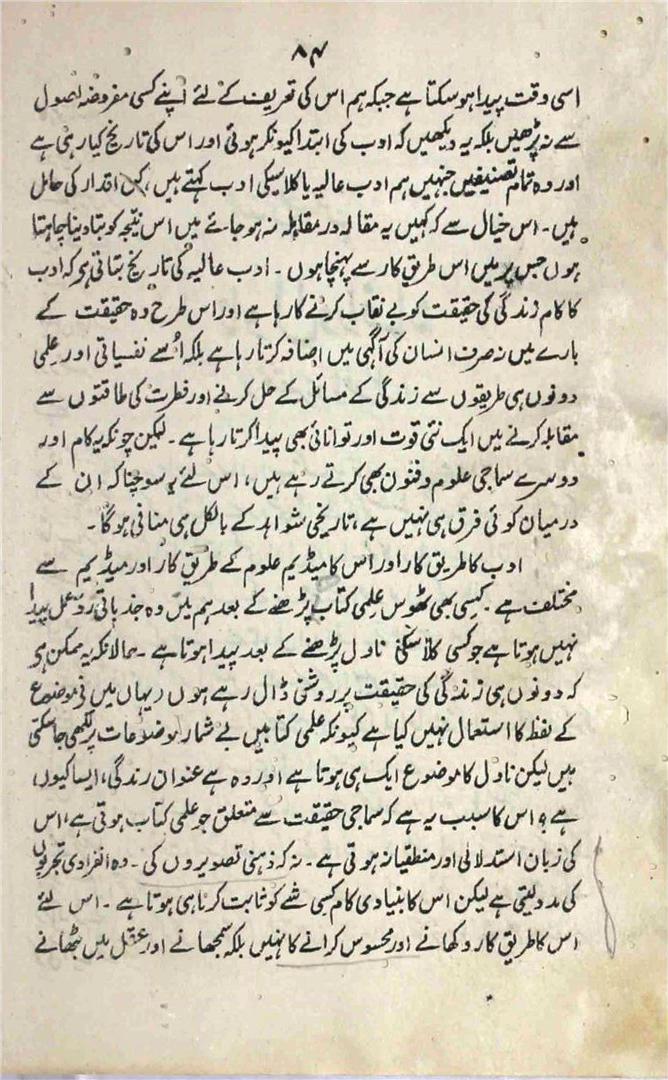 ۸۴
اسی وقت پیدا ہو سکتا ہے جبکہ ہم اس کی تعریف کے لئے اپنے کسی مفروضہ اصول
سے نہ بڑھیں بلکہ یہ دیکھیں کہ ادب کی ابتدا کیونکر ہوئی اور اس کی تاریخ کیا رہی ہے
اور وہ تمام تصنیفیں جنہیں ہم ادب عالیہ یا کلاسیکی ادب کہتے ہیں، کن اقدار کی حامل
ہیں۔ اس خیال سے کہ کہیں یہ مقالہ در مقابلہ نہ ہو جائے میں اس نتیجہ کو بتا دینا چاہتا
ہوں جس پر میں اس طریق کار سے پہنچا ہوں۔ ادب عالیہ کی تاریخ بتاتی ہے کہ ادب
کا کام زندگی کی حقیقت کو بے نقاب کرنے کا رہا ہے اور اس طرح وہ حقیقت کے
بارے میں نہ صرف انسان کی آگہی میں اضافہ کرتا رہا ہے بلکہ اُسے نفسیاتی اور علمی
دونوں ہی طریقوں سے زندگی کے مسائل کے حل کرنے اور فطرت کی طاقتوں سے
مقابلہ کرنے میں ایک نئی قوت اور توانائی بھی پیدا کرتا رہا ہے۔ لیکن چونکہ یہ کام اور
دوسرے سماجی علوم و فنون بھی کرتے رہے ہیں، اس لئے یہ سوچنا کہ ان کے
درمیان کوئی فرق ہی نہیں ہے، تاریخی شواہد کے بالکل ہی منافی ہوگا۔
ادب کا طریق کار اور اس کا میڈیم علوم کے طریق کار اور میڈیم سے
مختلف ہے۔ کیسی بھی ٹھوس علمی کتاب پڑھنے کے بعد ہم میں وہ جذباتی ردِ عمل پیدا
نہیں ہوتا ہے جو کسی کلاسکی ناول پڑھنے کے بعد پیدا ہوتا ہے۔ حالانکہ یہ ممکن ہی
کہ دونوں ہی زندگی کی حقیقت پر روشنی ڈال رہے ہوں (یہاں میں نے موضوع
کے لفظ کا استعمال نہیں کیا ہے کیونکہ علمی کتابیں بے شمار موضوعات پر لکھی جا سکتی
ہیں لیکن ناول کا موضوع ایک ہی ہوتا ہے اور وہ ہے عنوان زندگی، ایسا کیوں
ہے؟ اس کا سبب یہ ہے کہ سماجی حقیقت سے متعلق جو علمی کتاب ہوتی ہے، اس
کی زبان استدلالی اور منطقیانہ ہوتی ہے۔ نہ کہ ذہنی تصویروں کی۔ وہ انفرادی تجربوں
کی مدد لیتی ہے لیکن اس کا بنیادی کام کسی شے کو ثابت کرنا ہی ہوتا ہے۔ اس لئے
اس کا طریق کار دکھانے اور محسوس کرانے کا نہیں بلکہ سمجھانے اور عقل میں بٹھانے